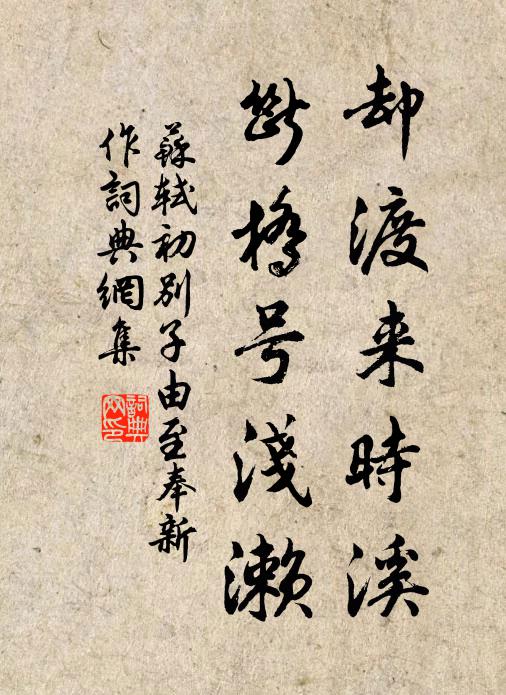 却渡来時溪
斷橋号淺瀨
蘇軾初別子由至奉新
作詞典網集
詞典网印